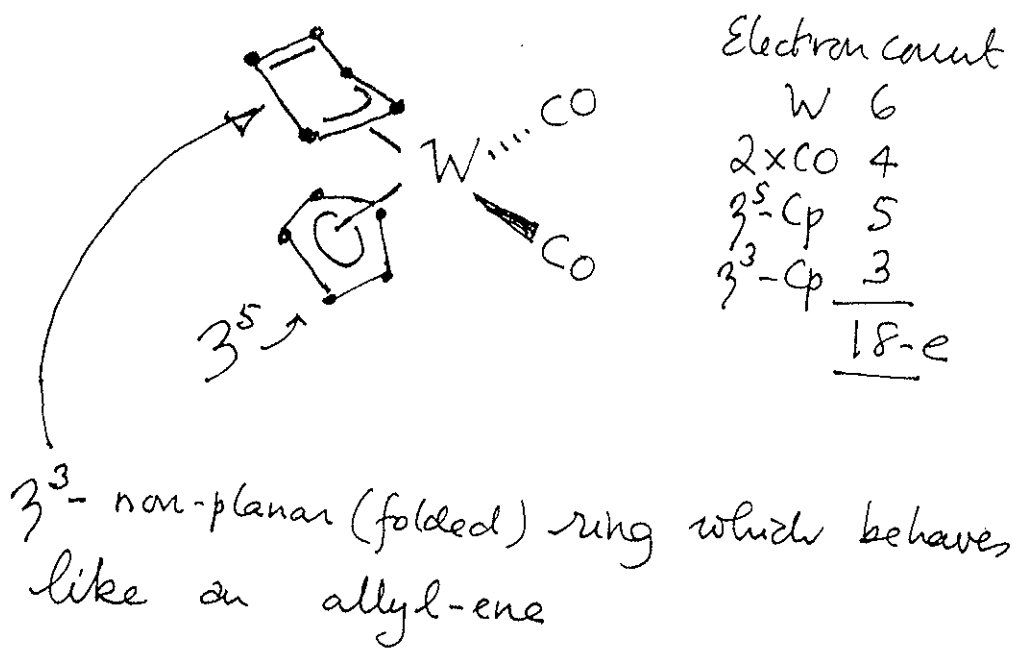 Electron count
W 6
2xCO 4
η⁵-Cp 5
η³-Cp 3
18-e
W
CO
CO
η⁵
η³- non-planar (folded) ring which behaves
like an allyl-ene